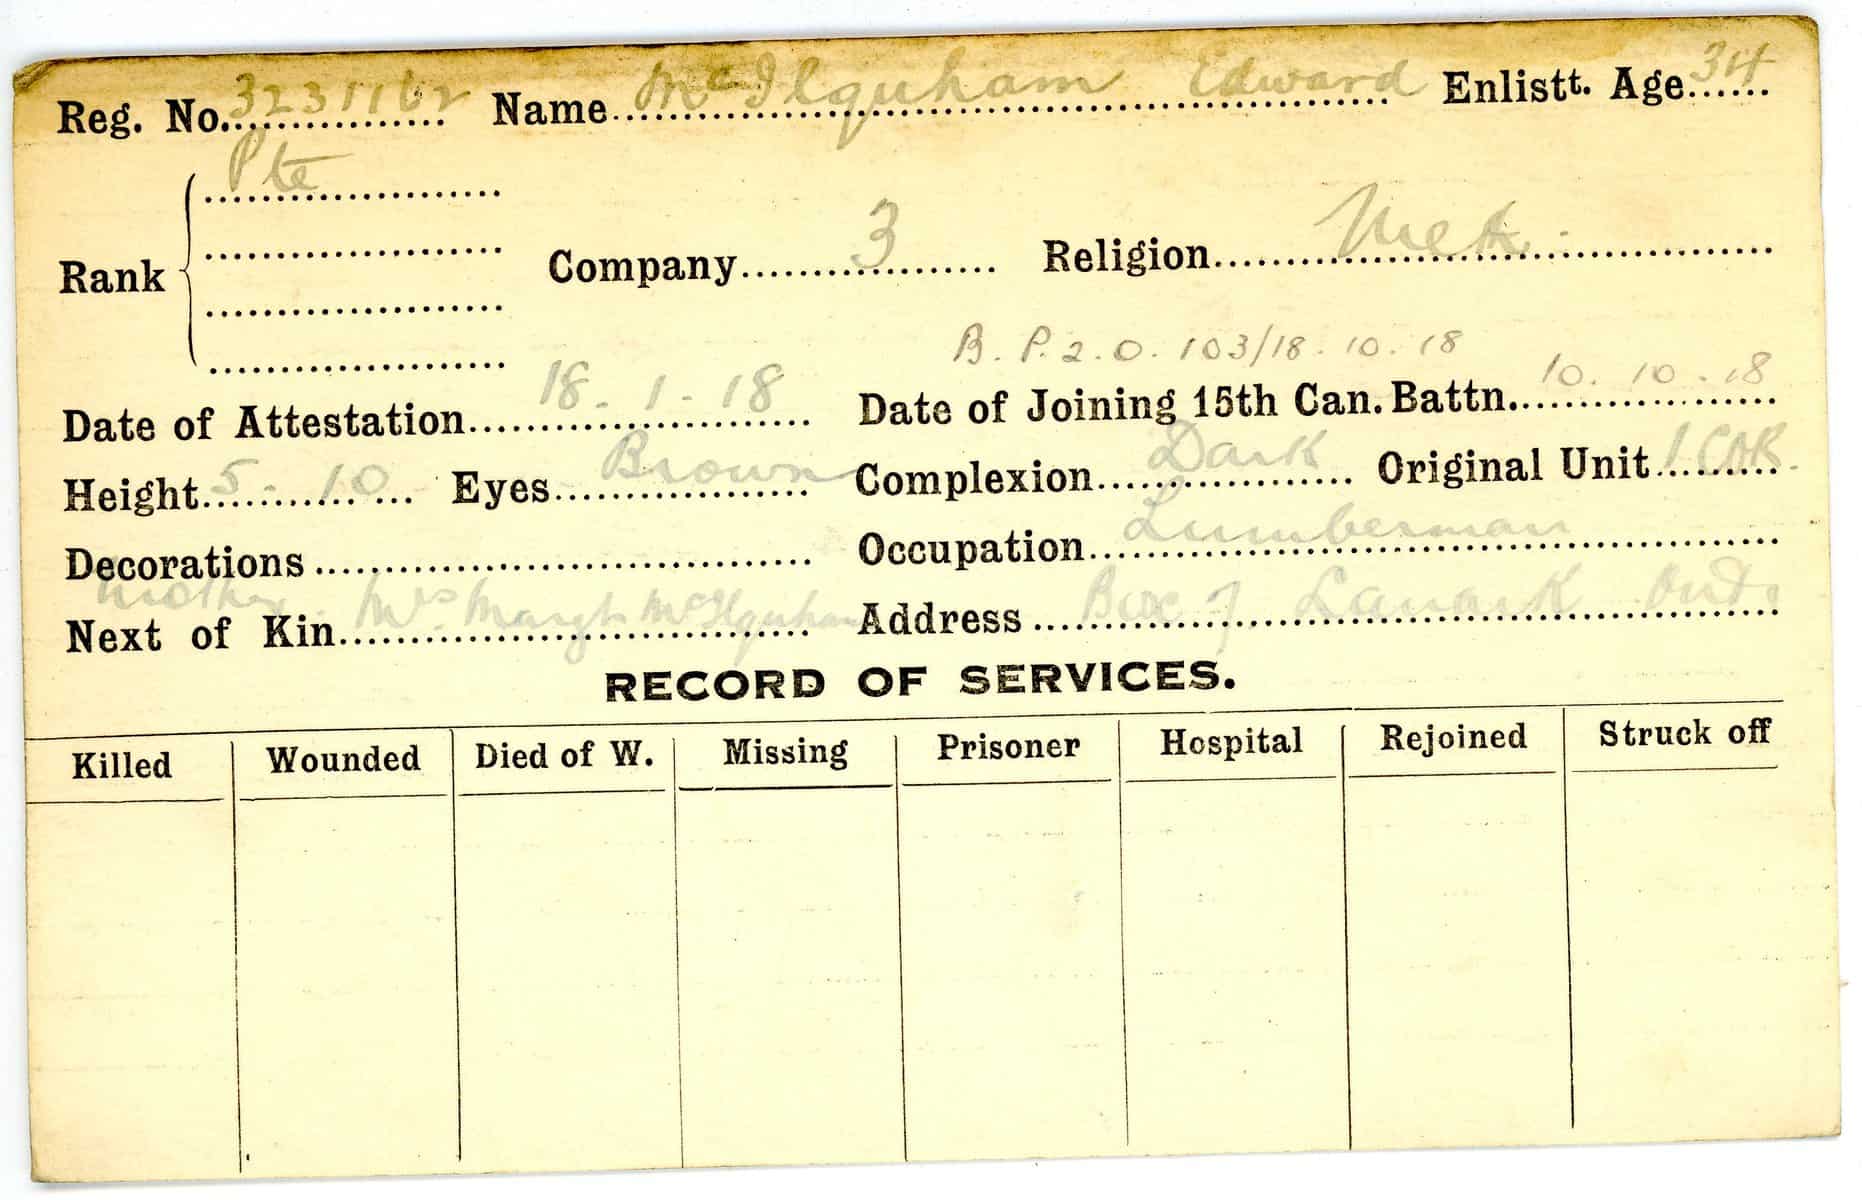 Reg. No. 3231162 Name McIlquham Edward Enlistt. Age 34
Rank Pte
Company 3 Religion Meth.
B. P. 2. O. 103/18. 10. 18
Date of Attestation 18 - 1 - 18 Date of Joining 15th Can. Battn. 10. 10. 18
Height 5 - 10 Eyes Brown Complexion Dark Original Unit 1 COR.
Decorations Occupation Lumberman
Mother
Next of Kin Mrs. Margt. McIlquham Address Box 7 Lanark Ont.
RECORD OF SERVICES.
Killed Wounded Died of W. Missing Prisoner Hospital Rejoined Struck off